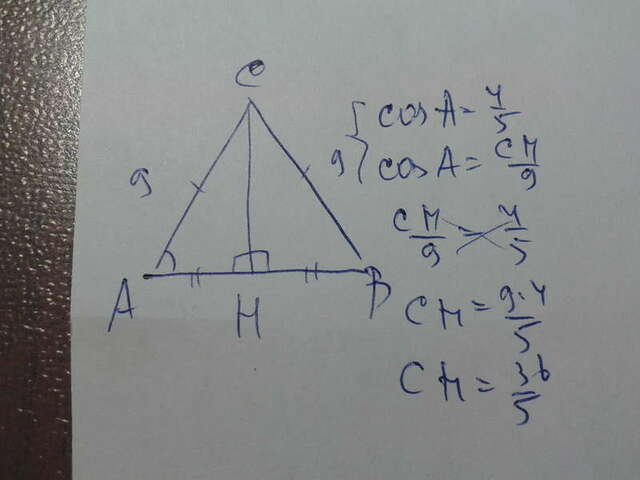 C
9
9
A
H
B
{ cos A = 4/5
cos A = CH/9
CH/9 = 4/5
CH = 9·4/5
CH = 36/5